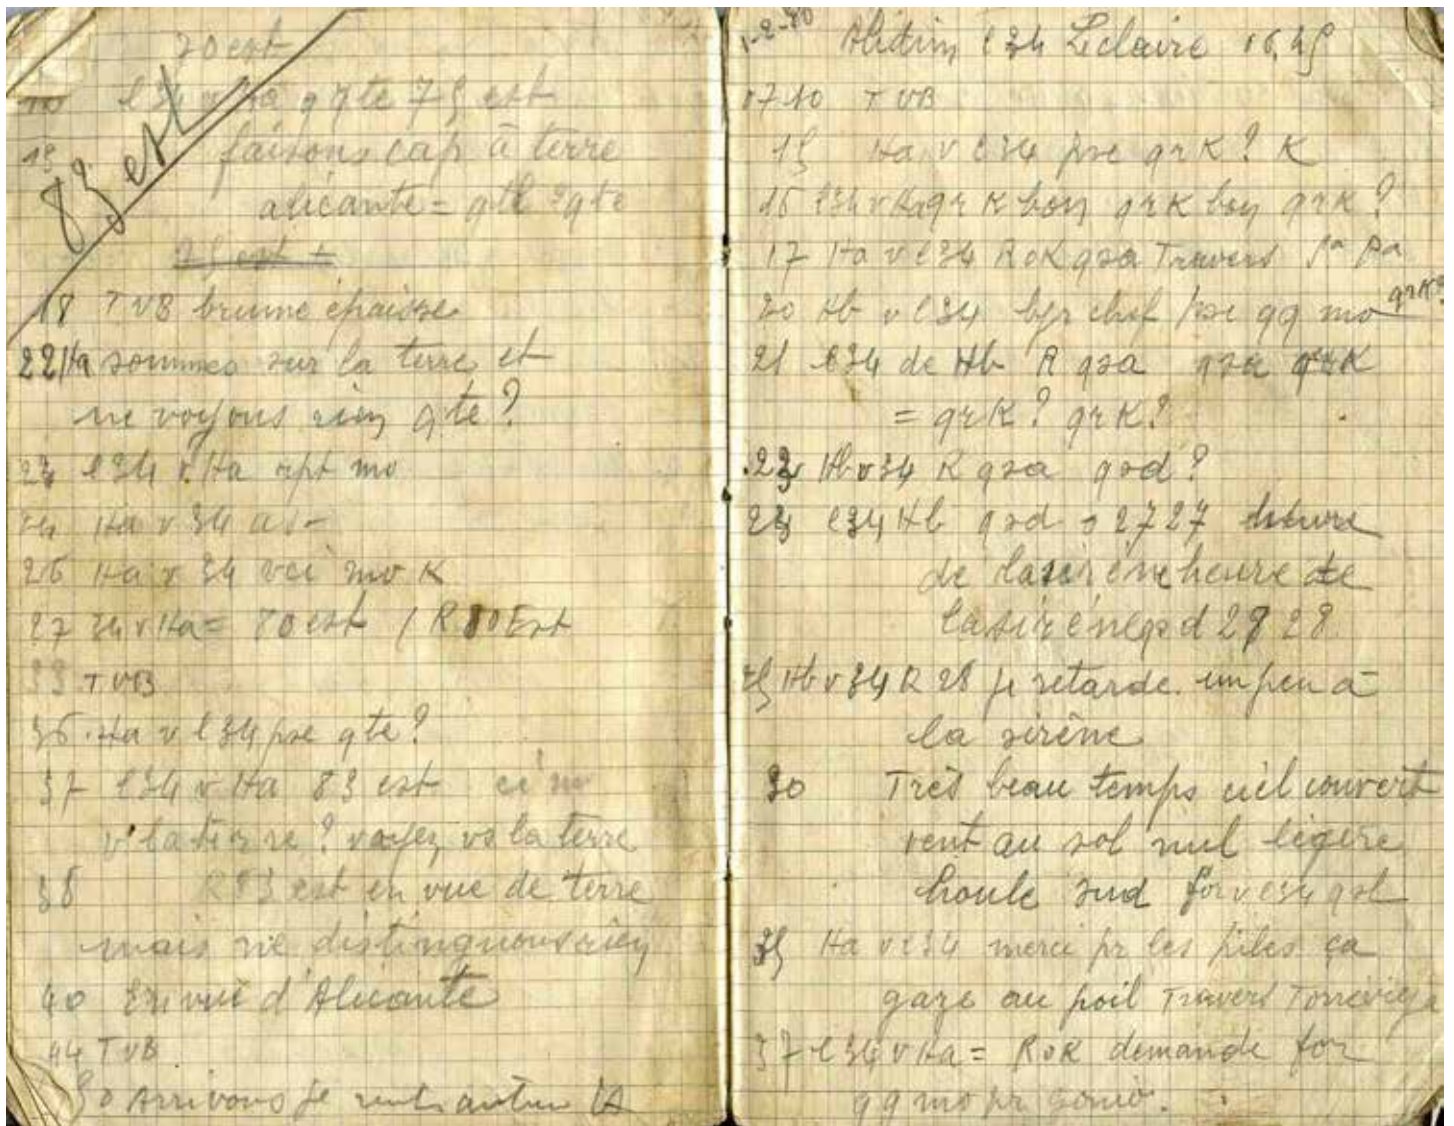 70 est
10 l34 v Ha qte 75 est
15 faisons cap à terre
alicante = qth ? qte
83 est
75 est +
18 TVB brume épaisse
22 Ha sommes sur la terre et
ne voyons rien qte ?
23 l34 v Ha rpt mo
24 Ha v 34 as -
26 Ha v 34 vci mo K
27 34 v Ha = 80 est / R 80 Est
33 TVB
36 Ha v l34 pse qte ?
37 l34 v Ha 83 est
v la terre ? voyez vs la terre
38 R 83 est en vue de terre
mais ne distinguons rien
40 En vue d'Alicante
44 TVB
50 Arrivons je antenne
1-2-30 l34 Leclaire 16,45
17 10 TVB
15 Ha v l34 pse qrK ? K
16 l34 v Ha qrK bon qrK bon qrK ?
17 Ha v l34 R OK qsa Travers
20 Hb v l34 bjr chef pse qq mo qrK ?
21 l34 de Hb R qsa qsa qrK
= qrK ? qrK ?
23 Hb v 34 R qsa qsd ?
23 l34 Hb qsd = 2727 heure
de la sirène heure de
la sirène qsd 28 28
25 Hb v 34 R 28 je retarde un peu à
la sirène
30 Très beau temps ciel couvert
vent au sol nul légère
houle sud for v l34 qsl
35 Ha v l34 merci pr les piles ça
gaze au poil Travers
37 l34 v Ha = R OK demande for
qq mo pr